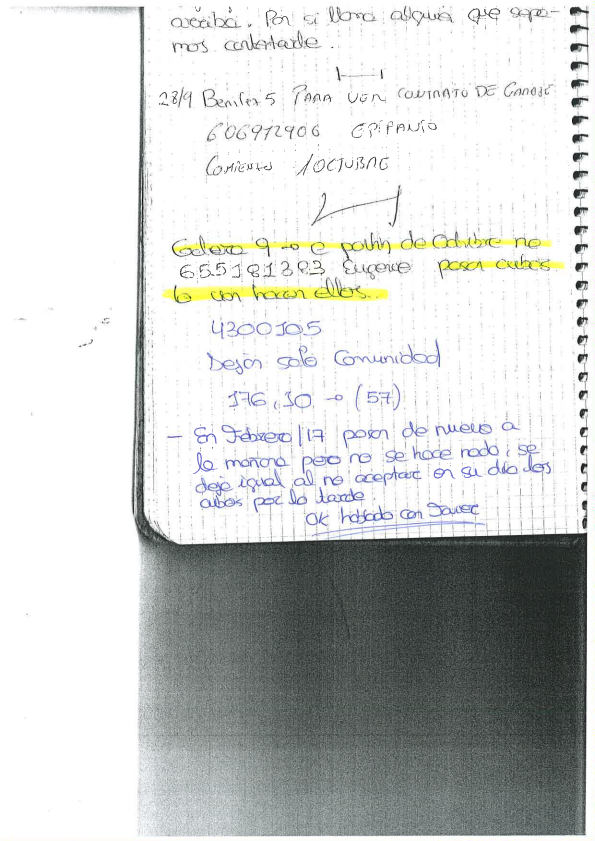 arriba. Por si llama alguien que sepa-
mos contestarle.
28/9 Benitez 5 PARA VER CONTRATO DE GARAJE
606972906 EPIFANIO
COMIENZO 1 OCTUBRE
Galera 9 → a partir de Octubre no
655181383 Eugenio pasar cubos
lo van hacer ellos.
4300105
Dejar solo Comunidad
176,10 → (57)
- En Febrero/17 pasan de nuevo a
la mañana pero no se hace nada, se
deja igual al no aceptar en su día los
cubos por la tarde
OK hablado con Javier